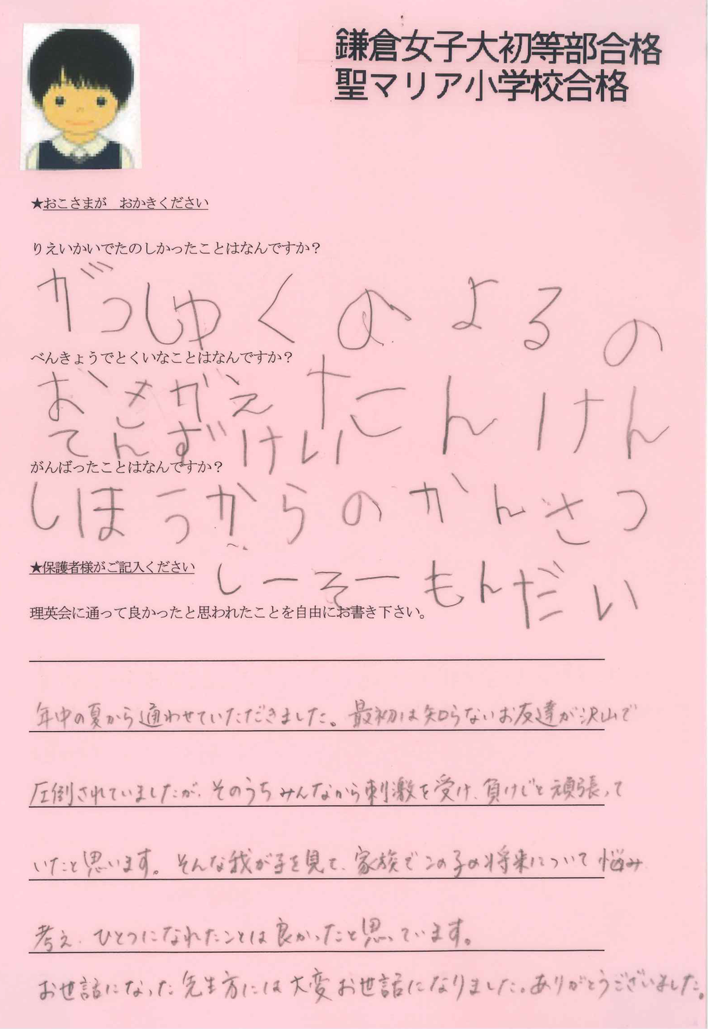 鎌倉女子大初等部合格
聖マリア小学校合格
★おこさまが　おかきください
りえいかいでたのしかったことはなんですか？
がっしゅくのよるの
べんきょうでとくいなことはなんですか？
おきがえたんけん
てんずけい
がんばったことはなんですか？
しほうからのかんさつ
★保護者様がご記入ください
しーそーもんだい
理英会に通って良かったと思われたことを自由にお書き下さい。
年中の夏から通わせていただきました。最初は知らないお友達が沢山で
圧倒されていましたが、そのうちみんなから刺激を受け、負けじと頑張って
いたと思います。そんな我が子を見て、家族でこの子の将来について悩み
考え、ひとつになれたことは良かったと思っています。
お世話になった先生方には大変お世話になりました。ありがとうございました。